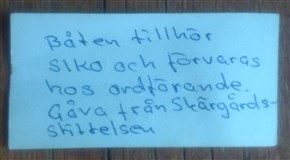 Båten tillhör
SIKO och förvaras
hos ordförande.
Gåva från Skärgårds-
stiftelsen